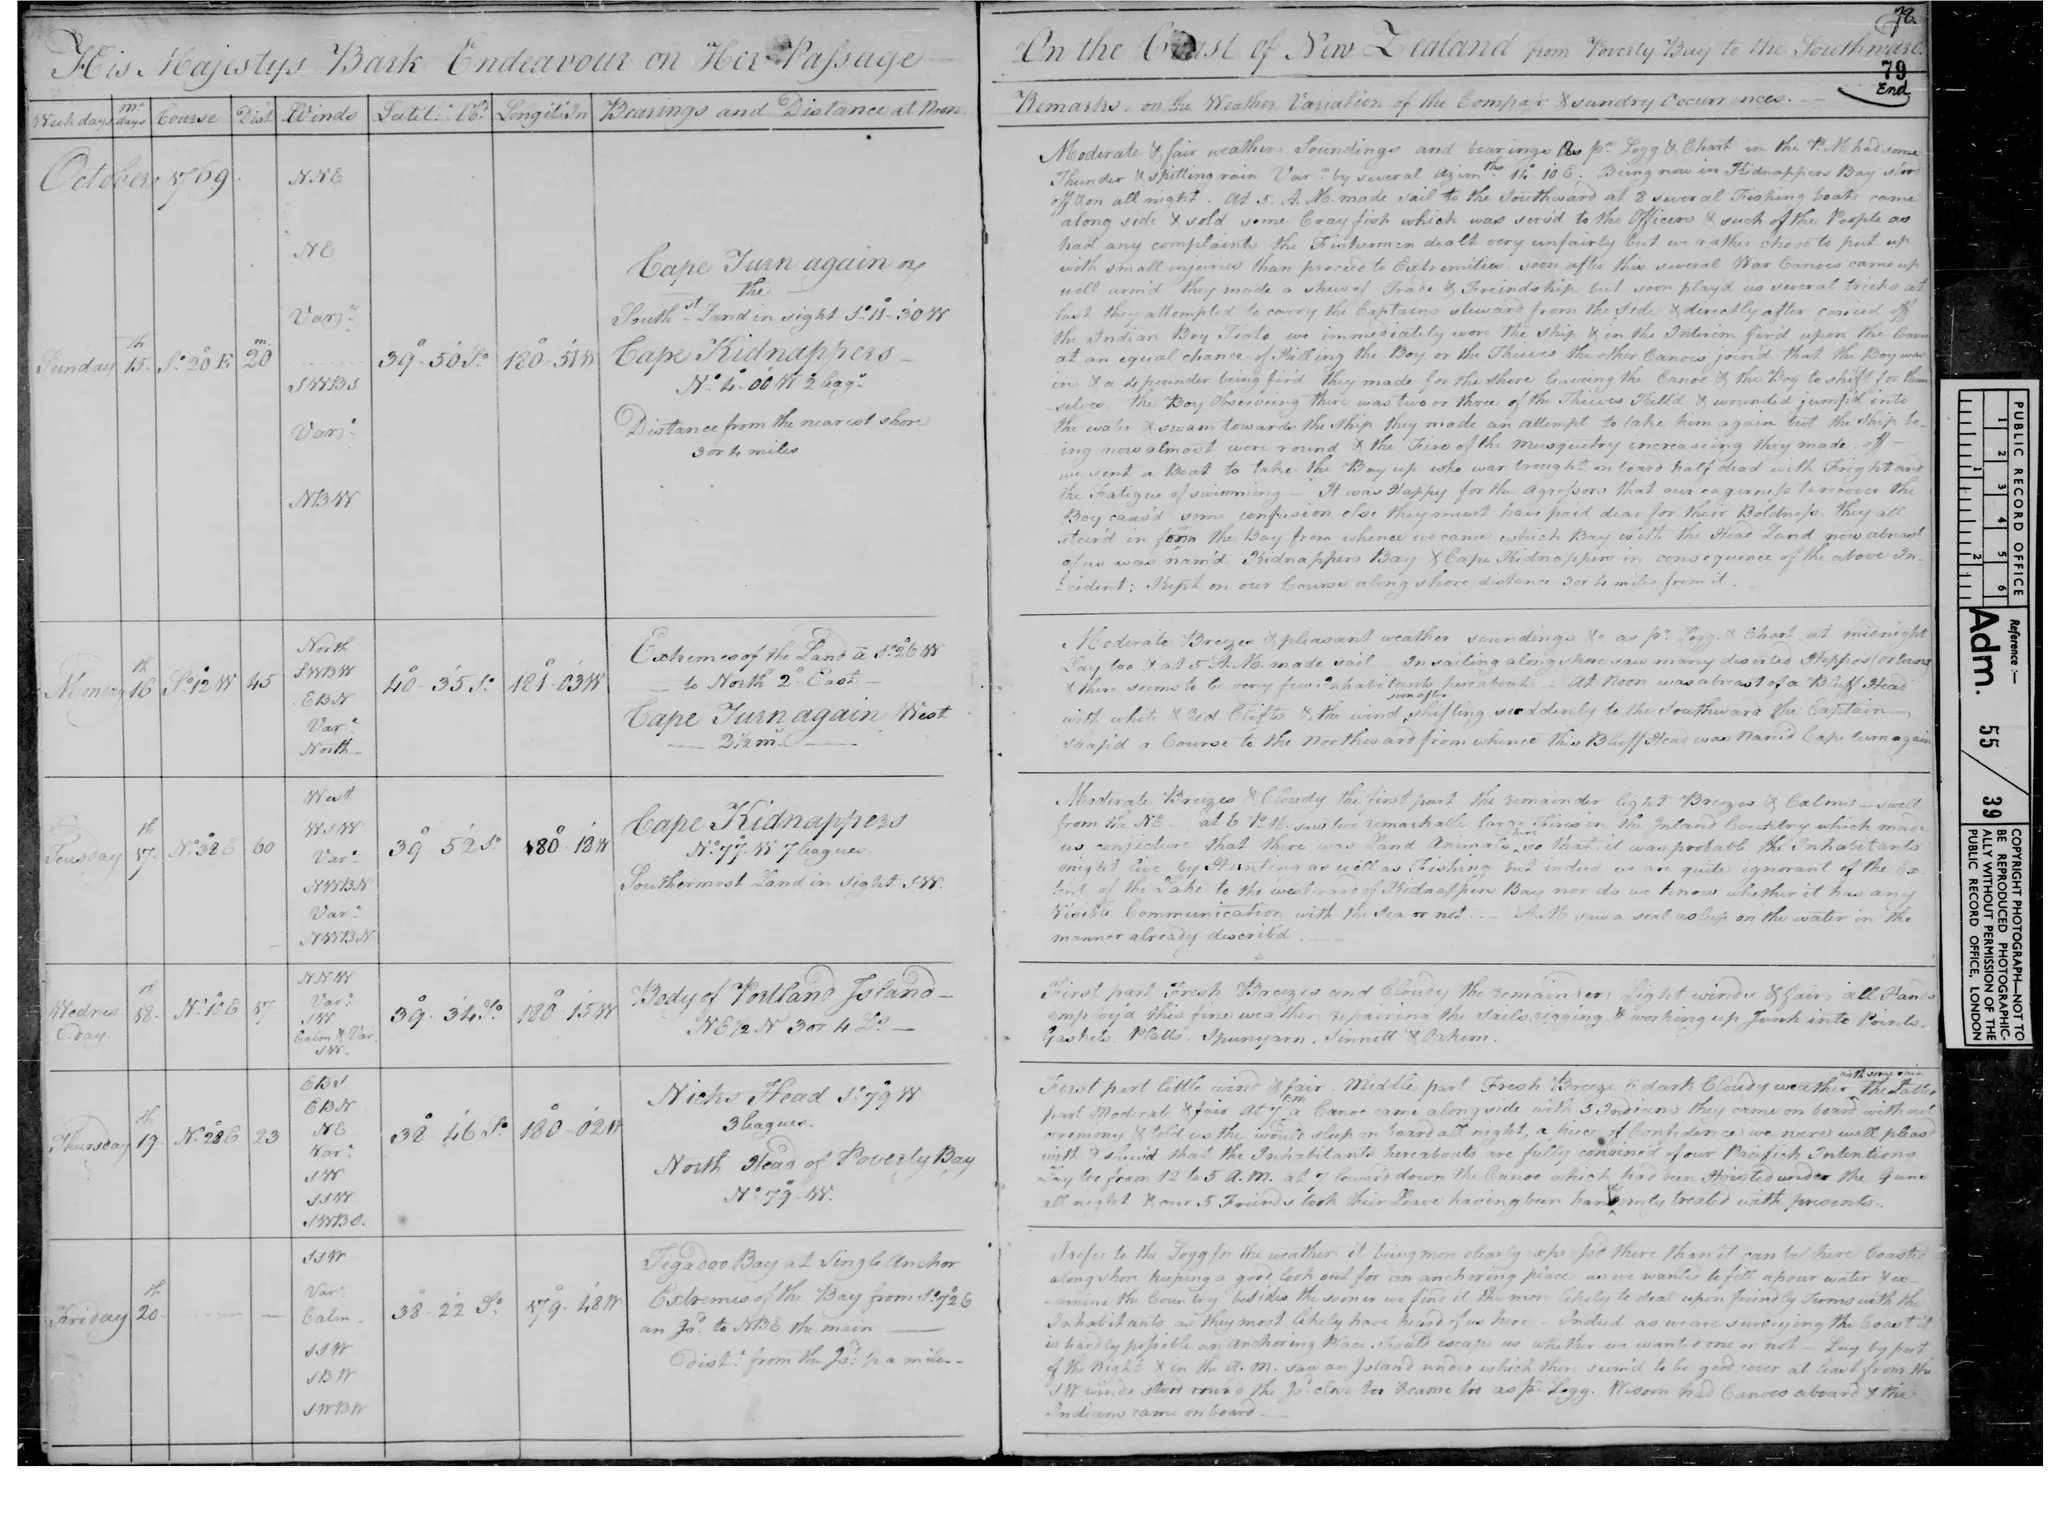 His Majestys Bark Endeavour on Her Passage
Week days | mo days | Course | Dist | Winds | Latit: Obs | Longit: In | Bearings and Distance at Noon
October 1769
NNE
NE
Var:
SWBS
Var:
NBW
Sunday 15th So 20 E 20 m 39° 50' So 180° 51' W
Cape Turn again or
the
South st Land in sight So 11° 30 W
Cape Kidnappers
No 4° 00 W 2 leag:
Distance from the nearest shore
3 or 4 miles
Monday 16th So 12° W 45 40° 35' So 181° 03' W
North
SWBW
EBN
Var:
North
Extremes of the Land a So 26 W
to North 2° East
Cape Turnagain West
2 1/2 m
Teusday 17th No 38 E 60 39° 52' So 180° 18' W
West
WSW
Var:
NWBN
Var:
NWBN
Cape Kidnappers
No 77° W 7 leagues
Southermost Land in sight SW.
Wednesday 18th No 18 E 17 39° 34' So 180° 15' W
NNW
Var:
SW
Calm & Var:
SW
Body of Portland Island
NE 1/2 N 3 or 4 Ls
Thursday 19th No 28 E 23 38° 46' So 180° 02' W
EBS
EBN
NE
Var:
SW
SSW
SWBS.
Nicks Head So 79 W
3 leagues.
North Head of Poverty Bay
No 79° W.
Friday 20th 38° 22' So 179° 48' W
SSW
Var:
Calm
SSW
SBW
SWBW
Tegadoo Bay at Single Anchor
Extremes of the Bay from So 72 E
an Isd to NBE the main
Dist: from the Isd: 1/2 a mile
78
On the Coast of New Zealand from Poverty Bay to the Southward.
79
End
Remarks on the Weather Variation of the Compass & sundry Occurrences.
Moderate & fair weather Soundings and bearings as pr Logg & Chart in the P.M had some
Thunder & spitting rain Varn by several Azimths 14° 10 E. Being now in Kidnappers Bay stood
off & on all night. At 5 A.M. made sail to the Southward at 8 several Fishing boats came
along side & sold some Cray fish which was serv'd to the Officers & such of the People as
had any complaints the Fishermen dealt very unfairly but we rather chose to put up
with small injuries than proceed to Extremities soon after this several War Canoes came up
well arm'd they made a shew of Trade & Freindship but soon play'd us several tricks at
last they attempted to carry the Captains steward from the side & directly after carried off
the Indian Boy Tiato we immediately wore the ship & in the Interim fir'd upon the Canoe
at an equal chance of Killing the Boy or the Theives the other Canoes join'd that the Boy was
in & a 4 pounder being fir'd they made for the shore leaveing the Canoe & the Boy to shift for them
-selves. the Boy Observeing there was two or three of the Theives Kill'd & wounded jump'd into
the water & swam towards the ship they made an attempt to take him again but the ship be-
ing now almost wore round & the Fire of the musquetry increasing they made off
we sent a Boat to take the Boy up who was brought on board half dead with Fright and
the Fatigue of swimming - It was Happy for the Agressors that our eagerness to recover the
Boy caus'd some confusion else they must have paid dear for their Boldness they all
steer'd in from the Bay from whence we came which Bay with the Head Land now abreast
of us was nam'd Kidnappers Bay & Cape Kidnappers in consequence of the above In-
-cident; Kept on our Course along shore distance 3 or 4 miles from it.
Moderate Breezes & pleasant weather soundings &c as pr Logg & Chart at midnight
Lay too & at 5 A.M. made sail In sailing along shore saw many deserted Heppos (or towns)
& there seems to be very few inhabitants hereabout At Noon was abreast of a Bluff Head
with white & red Clifts & the wind soon after shifting suddenly to the Southward the Captain
shap'd a Course to the Northward from whence this Bluff Head was Nam'd Cape turnagain
Moderate Breezes & Cloudy the first part the remainder light Breezes & Calms swell
from the NE at 6 P.M. saw two remarkable large Fires in the Inland Country which made
us conjecture that there was Land Animals here so that it was probable the Inhabitants
might live by Hunting as well as Fishing but indeed we are quite ignorant of the Ex-
tent of the Lake to the westward of Kidnappers Bay nor do we know whether it has any
Visible Communication with the Sea or not. A.M saw a seal asleep on the water in the
manner already describ'd.
First part Fresh Breezes and Cloudy the remainder light winds & fair all Hands
employ'd this fine weather repairing the sails rigging & working up Junk into Points.
Gaskets, Platts, Spunyarn, Sinnett & Oakem.
First part little wind & fair Middle part Fresh Breeze & dark Cloudy weather with some rain the Latter
part Moderate & fair At 7 P.M a Canoe came along side with 5 Indians they came on board without
ceremony & told us the would sleep on board all night, a piece of Confidence we were well pleas'd
with & shew'd that the Inhabitants hereabouts are fully convinc'd of our Pacifick Intentions
Lay too from 12 to 5 A.M. at 7 lower'd down the Canoe which had been Hoisted under the Guns
all night & our 5 Friends took their Leave having been handsomly treated with presents.
I refer to the Logg for the weather it being more clearly express'd there than it can be here Coasted
along shore keeping a good look out for an anchoring place as we wanted to fill a pour water & ex-
-amine the Country besides the sooner we find it the more likely to deal upon friendly Terms with the
Inhabitants as they most likely have heard of us here - Indeed as we are surveying the Coast it
is hardly possible an anchoring Place should escape us whether we wanted one or not - Lay by part
of the Night & in the A.M. saw an Island under which there seem'd to be good cover at least from the
SW winds stood round the Isd close too & came too as pr Logg. We soon had Canoes aboard & the
Indians came on board
PUBLIC RECORD OFFICE
1 2 3 4 5 6
1 2
Reference:-
Adm. 55/39
COPYRIGHT PHOTOGRAPH-NOT TO
BE REPRODUCED PHOTOGRAPHIC-
ALLY WITHOUT PERMISSION OF THE
PUBLIC RECORD OFFICE, LONDON